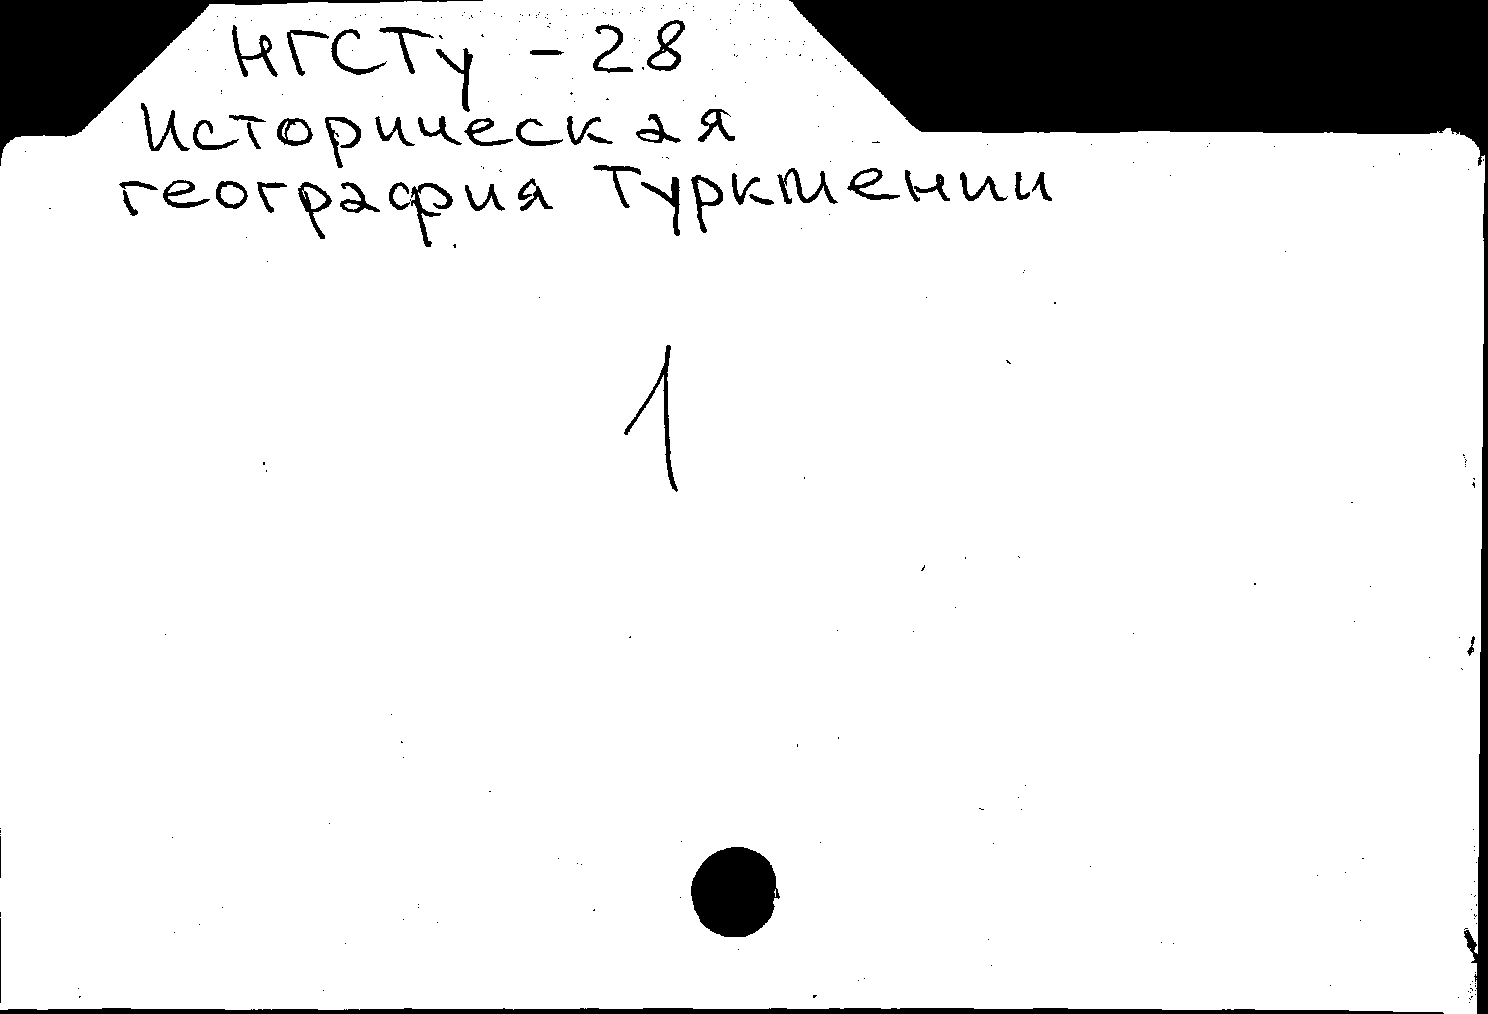 НГСТу - 28
Историческая
география Туркмении
1